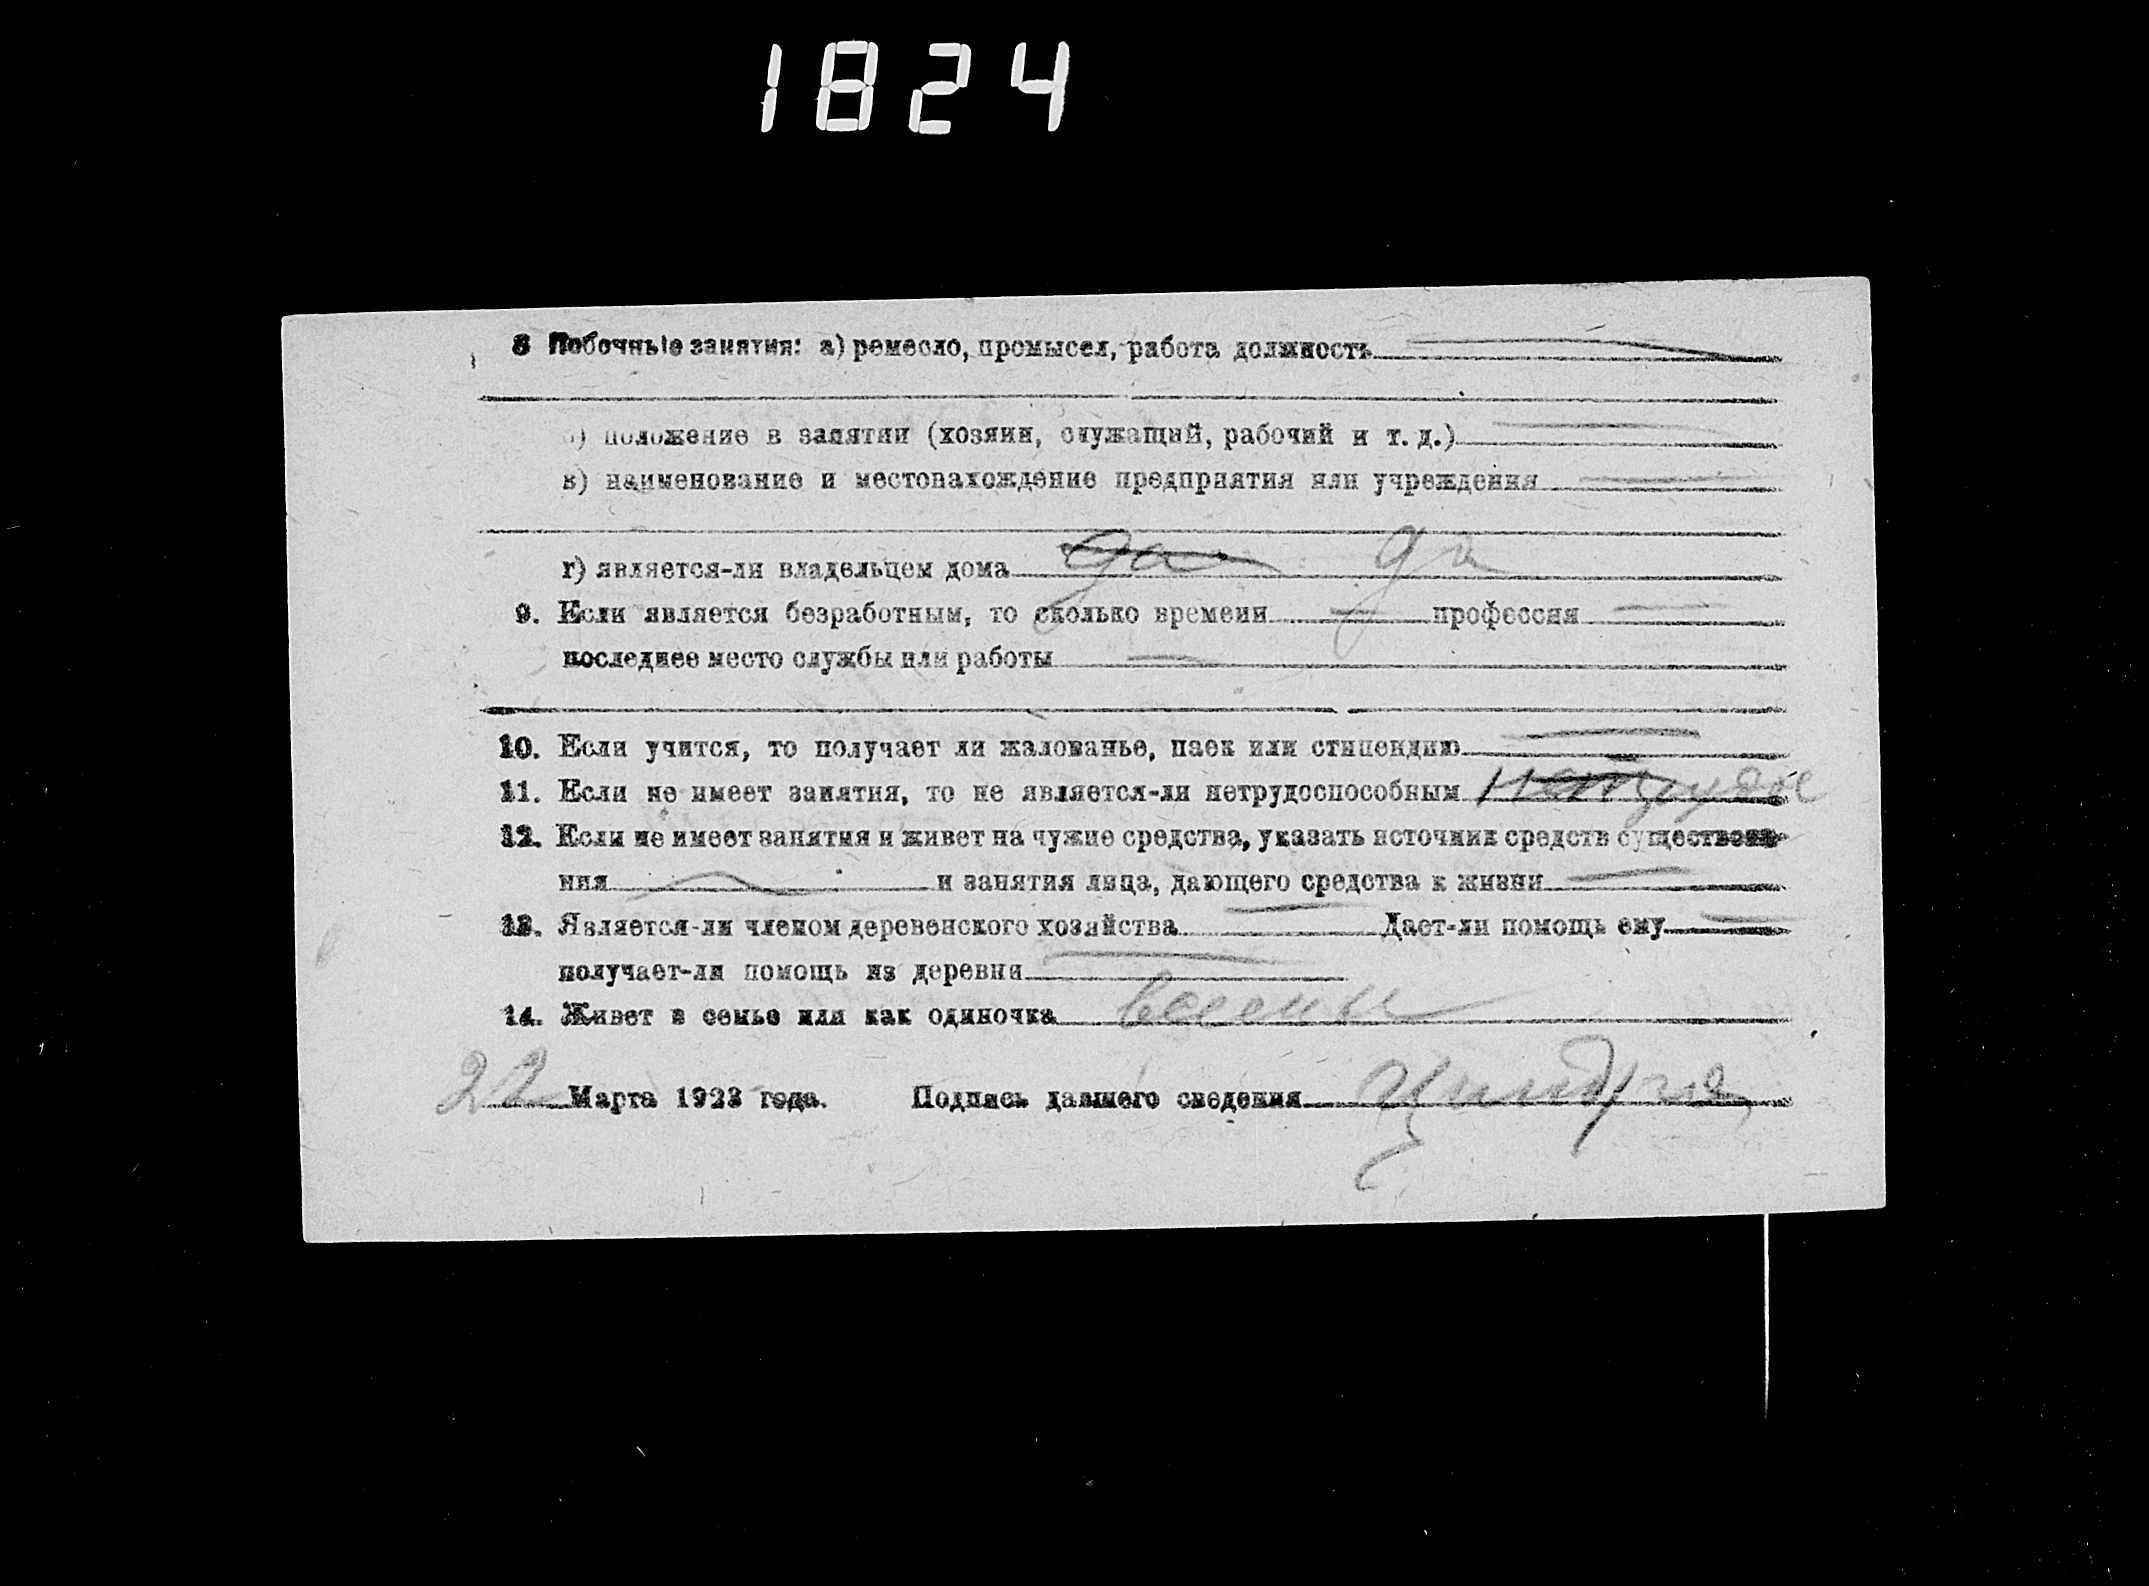 1824
8 Побочные занятия: а) ремесло, промысел, работа должность
б) положение в занятии (хозяин, служащий, рабочий и т. д.)
в) наименование и местонахождение предприятия или учреждения
г) является-ли владельцем дома да да
9. Если является безработным, то сколько времени — профессия —
последнее место службы или работы —
10. Если учится, то получает ли жалованье, паек или стипендию —
11. Если не имеет занятия, то не является-ли нетрудоспособным
12. Если не имеет занятия и живет на чужие средства, указать источник средств существова-
ния — и занятия лица, дающего средства к жизни —
13. Является-ли членом деревенского хозяйства — Дает-ли помощь ему —
получает-ли помощь из деревни —
14. Живет в семье или как одиночка
22 Марта 1923 года. Подпись давшего сведения